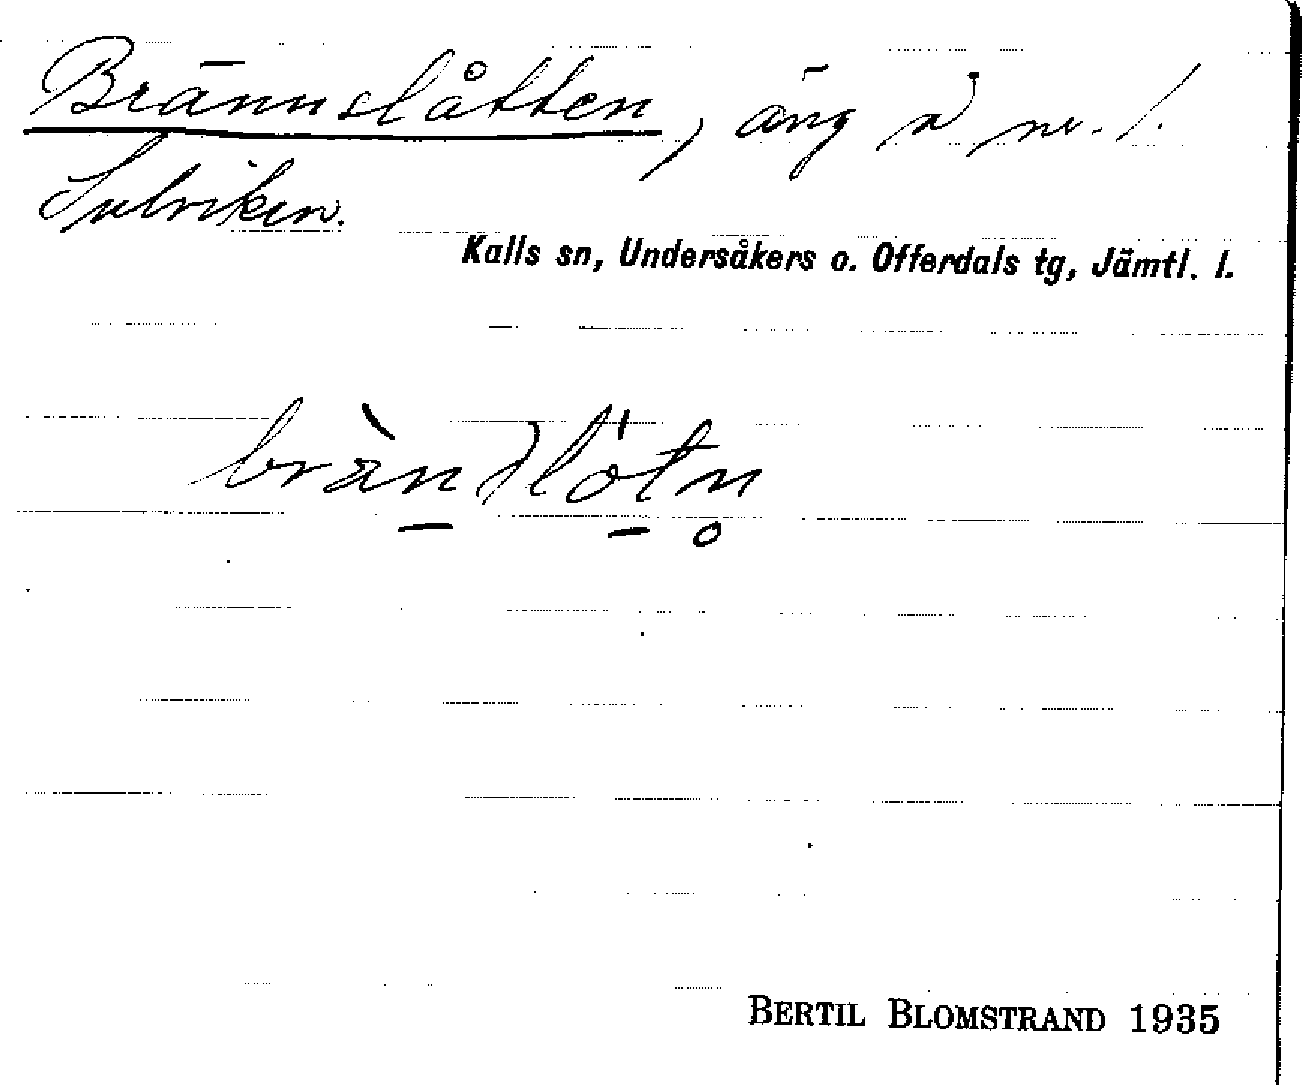 Brännslåtten, äng i nv. l.
Sulviken.
Kalls sn, Undersåkers o. Offerdals tg, Jämtl. l.
BERTIL BLOMSTRAND 1935